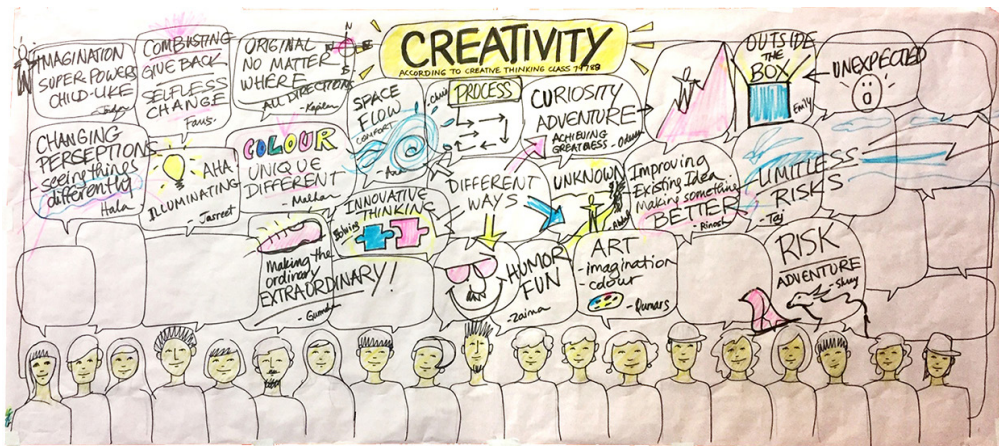 CREATIVITY
ACCORDING TO CREATIVE THINKING CLASS
IMAGINATION
SUPER POWERS
CHILD-LIKE
COMBUSTING
GIVE BACK
SELFLESS
CHANGE
ORIGINAL
NO MATTER
WHERE
ALL DIRECTIONS
N
SPACE
FLOW
COMFORT
PROCESS
CURIOSITY
ADVENTURE
ACHIEVING
GREATNESS
OUTSIDE
THE
BOX
Emily
UNEXPECTED
CHANGING
PERSEPTIONS
- seeing things
differently
Hala
AHA
ILLUMINATING
- Jasreet
COLOUR
UNIQUE
DIFFERENT
INNOVATIVE
THINKING
DIFFERENT
WAYS
UNKNOWN
Improving
Existing Idea
Making something
BETTER
LIMITLESS
RISKS
- Taj
Making the
ordinary
EXTRAORDINARY!
HUMOR
FUN
- Zaima
ART
- imagination
- colour
- Qumars
RISK
ADVENTURE